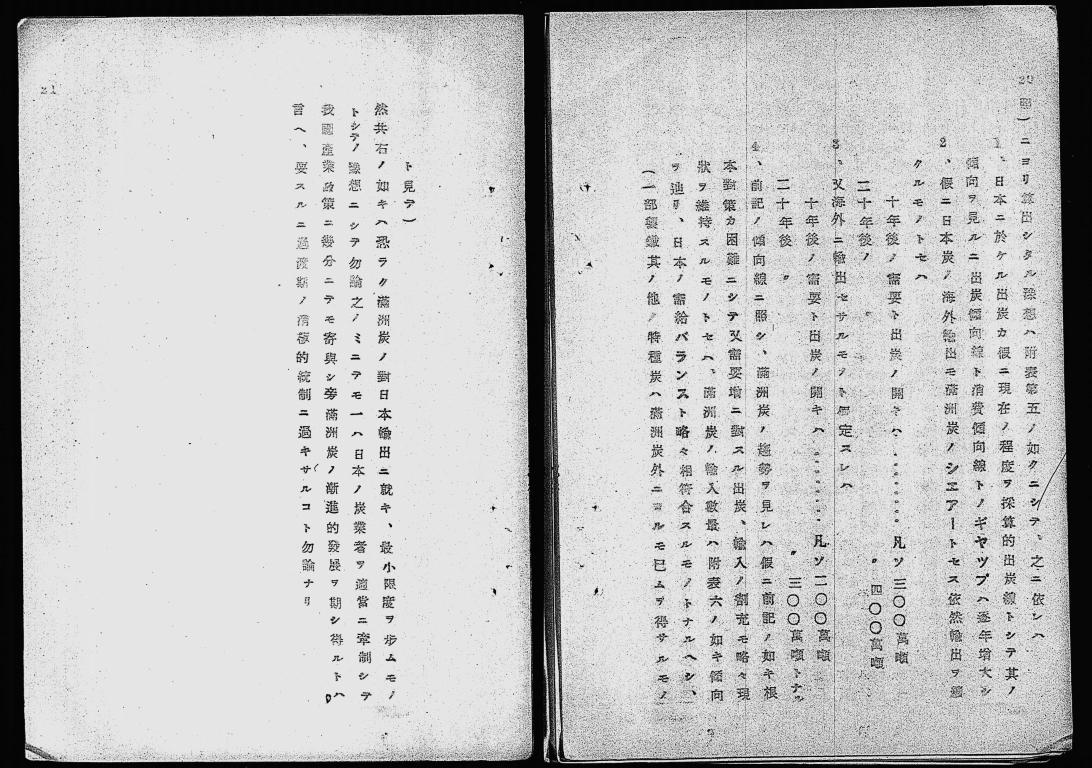 20
照)ニヨリ算出シタル豫想ハ附表第五ノ如クニシテ、之ニ依レハ
1、日本ニ於ケル出炭カ假ニ現在ノ程度ヲ採算的出炭線トシテ其ノ
傾向ヲ見ルニ出炭傾向線ト消費傾向線トノギヤツプハ逐年増大シ
2、假ニ日本炭ノ海外輸出モ滿洲炭ノシエアートセス依然輸出ヲ續
クルモノトセハ
十年後ノ需要ト出炭ノ開キハ………凡ソ三〇〇萬噸
二十年後ノ 〃 〃 四〇〇萬噸
3、又海外ニ輸出セサルモノト假定スレハ
十年後ノ需要ト出炭ノ開キハ………凡ソ二〇〇萬噸
二十年後 〃 〃 三〇〇萬噸トナル
4、前記ノ傾向線ニ照シ、滿洲炭ノ趨勢ヲ見レハ假ニ前記ノ如キ根
本對策カ困難ニシテ又需要増ニ對スル出炭、輸入ノ割充モ略々現
狀ヲ維持スルモノトセハ、滿洲炭ノ輸入數量ハ附表六ノ如キ傾向
ヲ辿リ、日本ノ需給バランスト略々相符合スルモノトナルヘシ、
(一部製鐵其ノ他ノ特種炭ハ滿洲炭外ニヨルモ已ムヲ得サルモノ
21
ト見テ)
然共右ノ如キハ恐ラク滿洲炭ノ對日本輸出ニ就キ、最小限度ヲ歩ムモノ
トシテノ豫想ニシテ勿論之ノミニテモ一ハ日本ノ炭業者ヲ適當ニ牽制シテ
我國産業政策ニ幾分ニテモ寄與シ旁滿洲炭ノ漸進的發展ヲ期シ得ルトハ
言ヘ、要スルニ過渡期ノ消極的統制ニ過キサルコト勿論ナリ